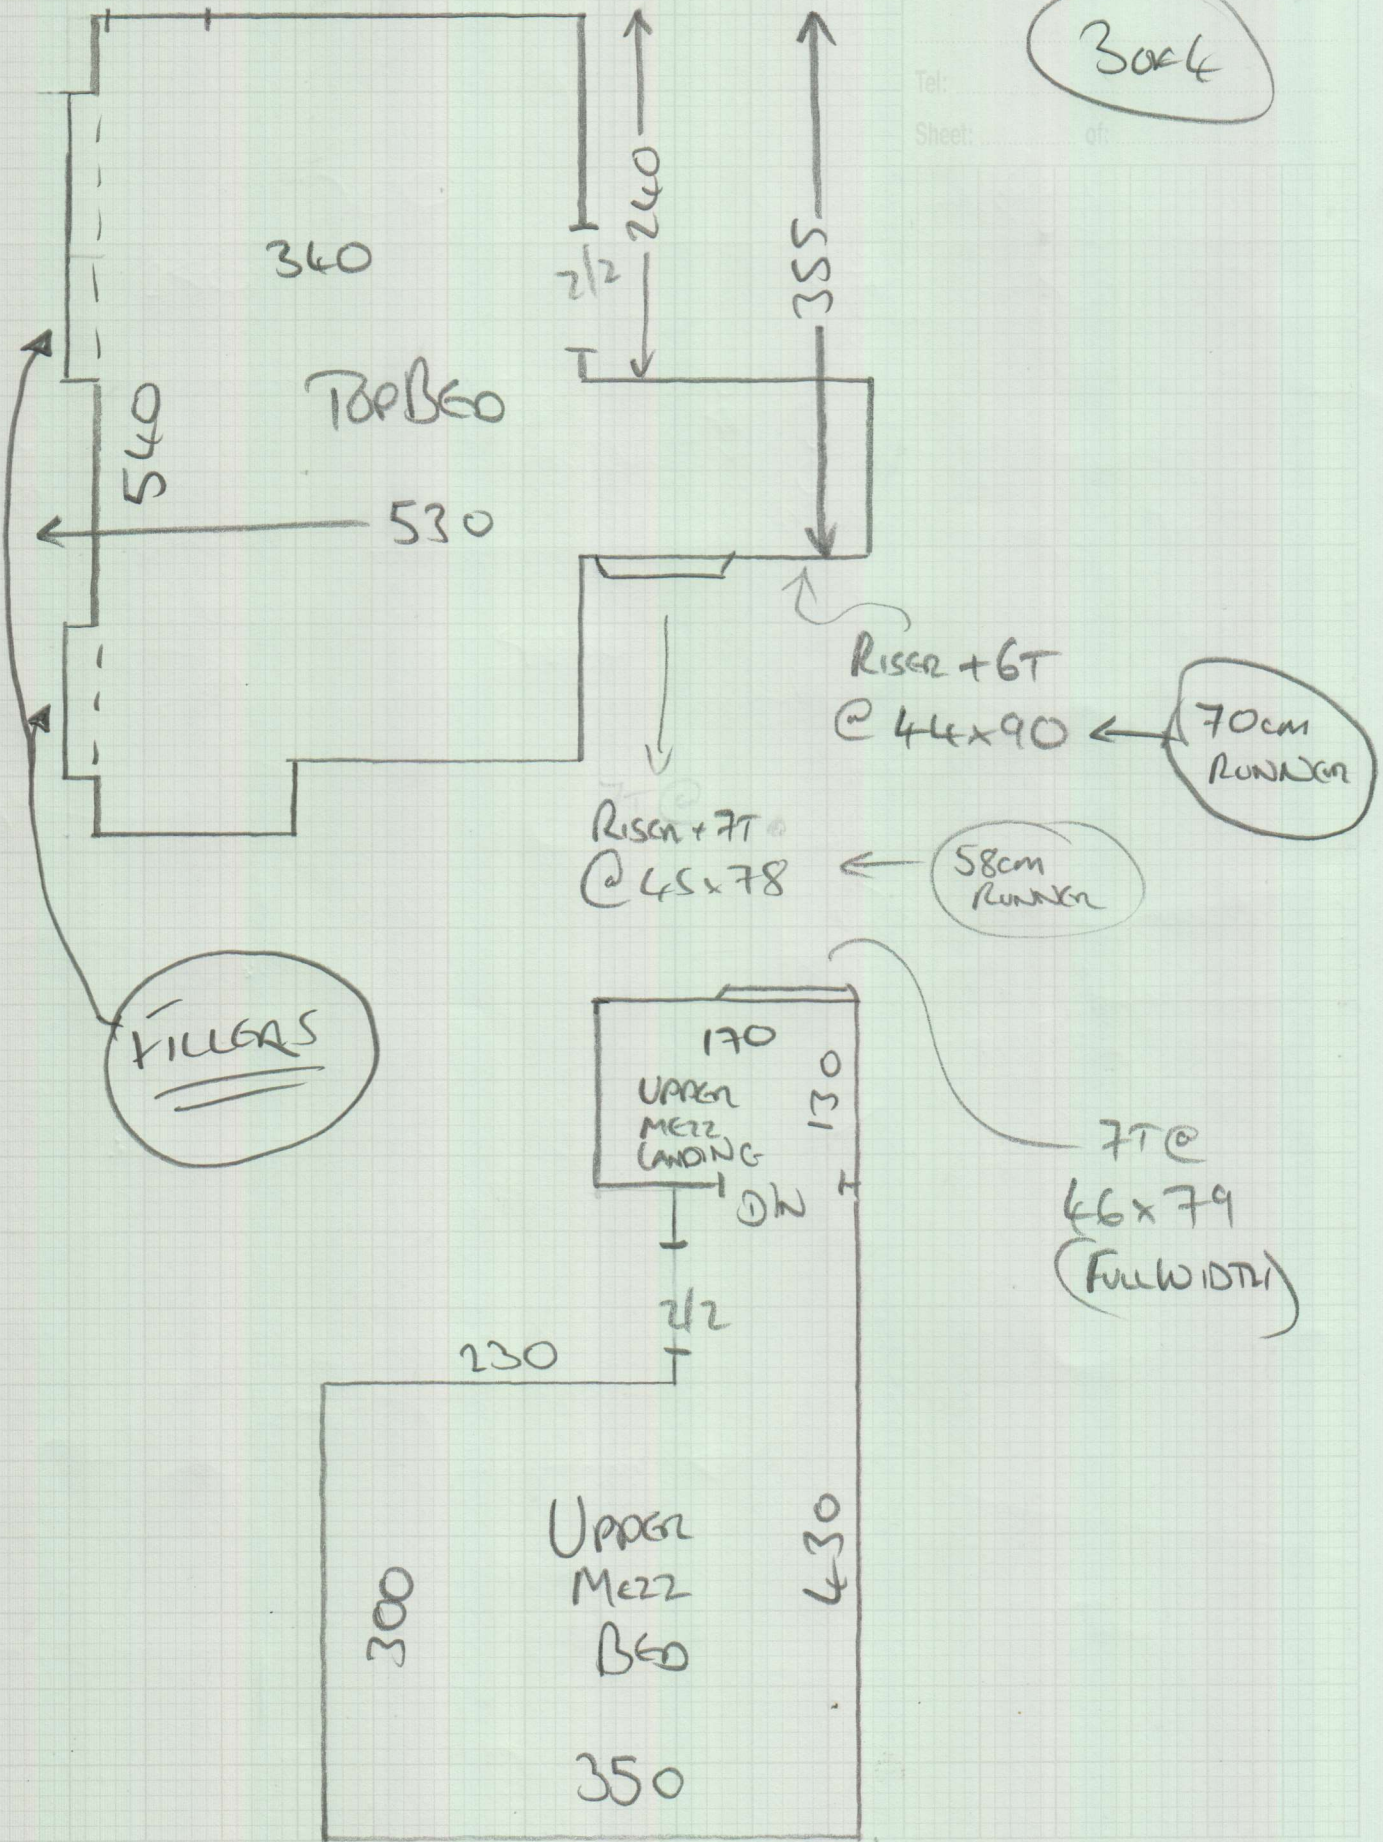 3 OF 4
Tel:
Sheet: of:
240
355
340
2/2
TOP BED
540
530
RISER + 6T
@ 44x90
70cm
RUNNER
RISER + 7T
@ 45x78
58cm
RUNNER
FILLERS
170
130
UPPER
MEZZ
LANDING
D/W
7T @
46x79
(FULL WIDTH)
2/2
230
UPPER
MEZZ
BED
430
300
350